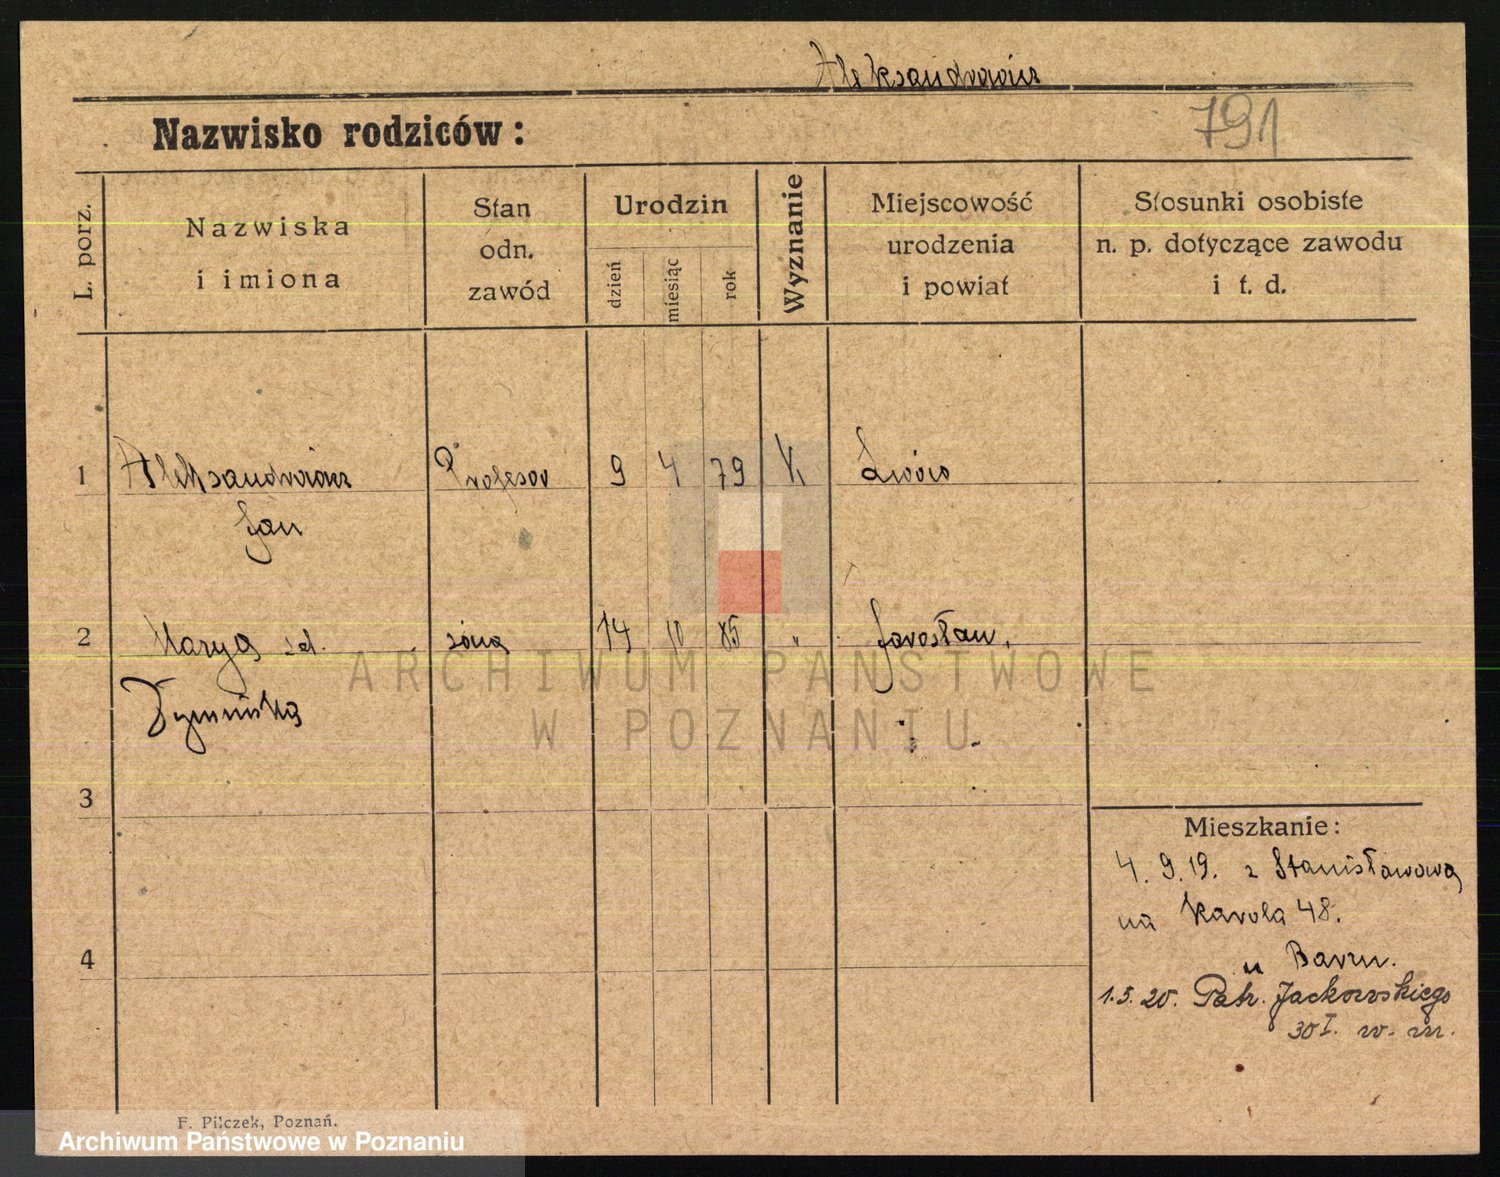 Aleksandrowicz
791
Nazwisko rodziców:
L. porz.
Nazwiska
i imiona
Stan
odn.
zawód
Urodzin
dzień
miesiąc
rok
Wyznanie
Miejscowość
urodzenia
i powiat
Stosunki osobiste
n. p. dotyczące zawodu
i t. d.
1 Aleksandrowicz Profesor 9 4 79 K Lwów
Jan
2 Marya żona 14 10 85 " Jarosław.
3
4
Mieszkanie:
4. 9. 19. z Stanisławowa
na Karola 48.
u
1. 5. 20. Patr. Jackowskiego
30 I. w. m.
F. Pilczek, Poznań.
ARCHIWUM PAŃSTWOWE
W POZNANIU
Archiwum Państwowe w Poznaniu